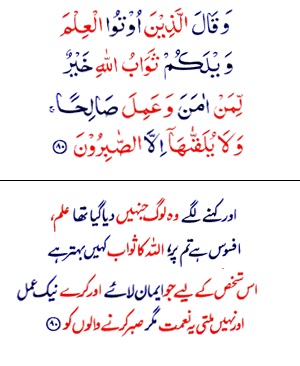 وَ قَالَ الَّذِيْنَ اُوْتُوا الْعِلْمَ
وَيْلَكُمْ ثَوَابُ اللّٰهِ خَيْرٌ
لِّمَنْ اٰمَنَ وَ عَمِلَ صَالِحًا ۚ
وَ لَا يُلَقّٰىهَاۤ اِلَّا الصّٰبِرُوْنَ ﴿۸۰﴾
اور کہنے لگے وہ لوگ جنہیں دیا گیا تھا علم،
افسوس ہے تم پر، اللہ کا ثواب کہیں بہتر ہے
اس شخص کے لیے جو ایمان لائے اور کرے نیک عمل
اور نہیں ملتی یہ نعمت مگر صبر کرنے والوں کو ﴿۸۰﴾